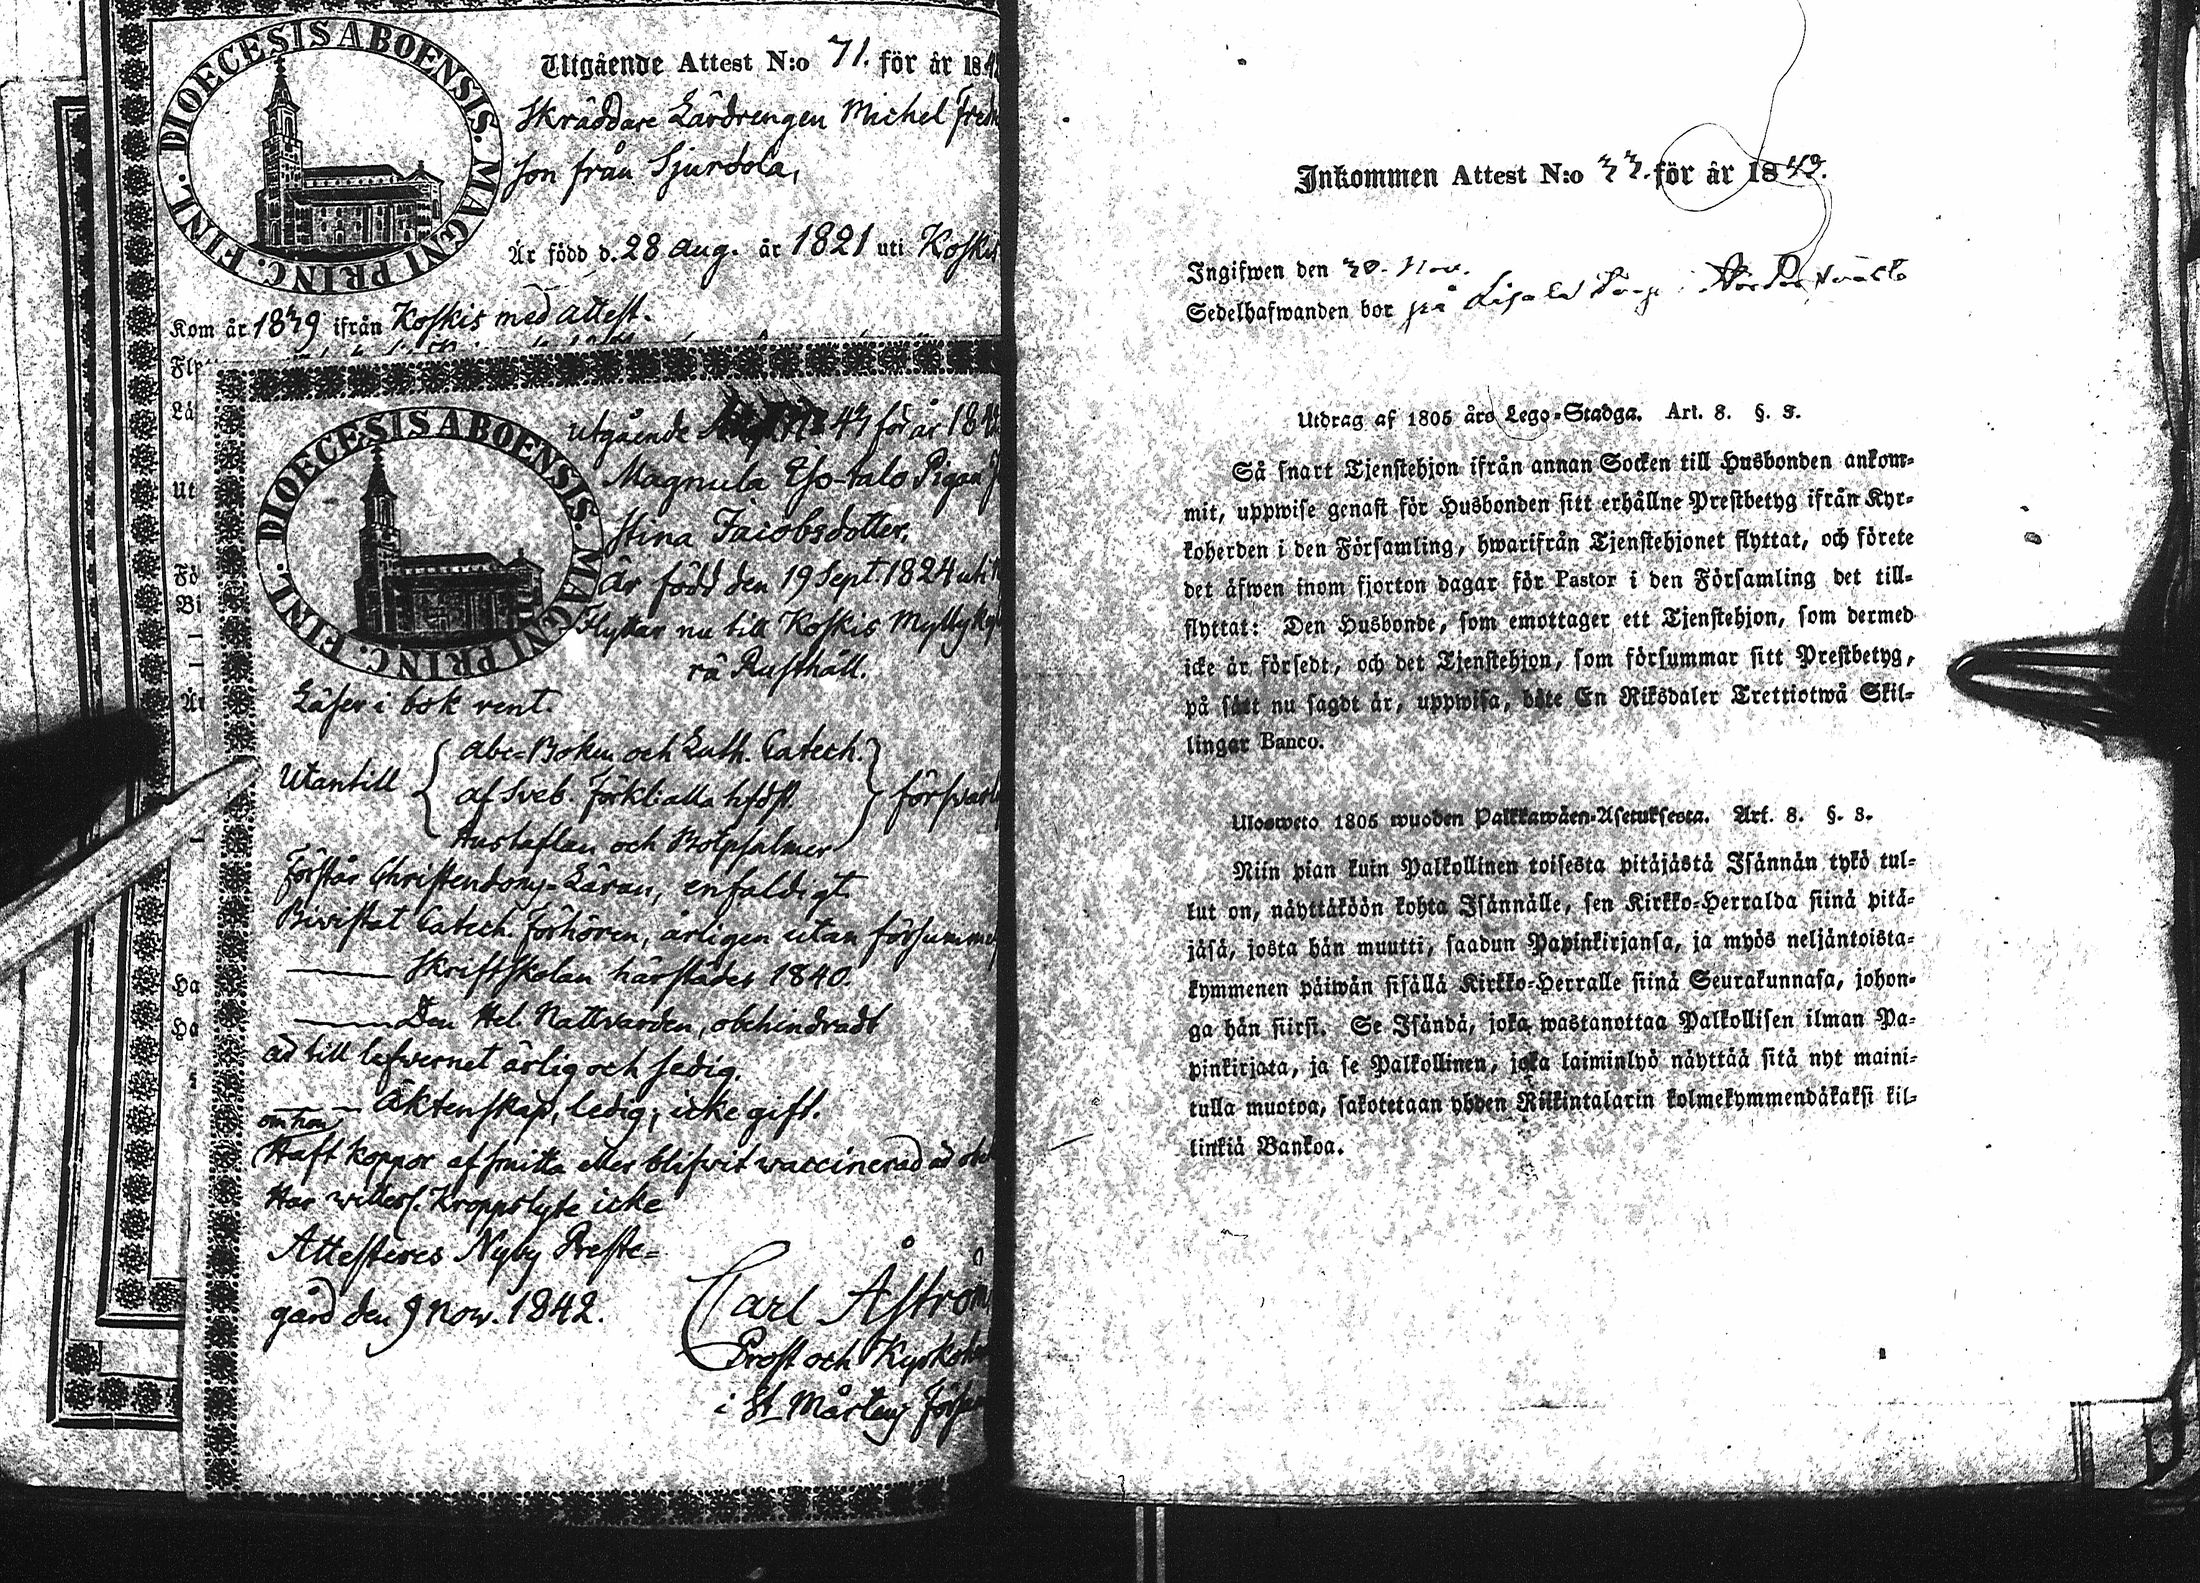 DIOECESIS ABOENSIS. MAGNI PRINC. FINL.
Utgående Attest N:o 71. för år 184
Skräddare Lärdrengen Michel Fred
son från Sjurdola,
Är född d. 28 Aug. år 1821 uti Koskis
Kom år 1839 ifrån Koskis med attest.
Fly
Lä
Ut
Fö
Bi
Är
Ha
Ha
DIOECESIS ABOENSIS. MAGNI PRINC. FINL.
Utgående för år 18
Magnula Yso-talo Pigan
Stina Jacobsdotter.
Är född den 19 Sept. 1824 uti
Flyttar nu till Koskis Myllyky
rä Rusthåll.
Läser i bok rent.
Utantill
abc-Boken och Luth. Catech.
af Sveb. Förkl: alla hfdst.
Hustaflan och Botpsalmer
försvarl
Förstår Christendoms-Läran, enfaldigt
Bevistat Catech. Förhören, årligen utan försumme
Skriftskolan härstädes 1840.
Den Hel. Nattvarden, obehindradt
ad till lefvernet ärlig och sedig.
Äktenskap, ledig, icke gift.
om hon
Haft koppor af smitta eller blifvit vaccinerad ad obek
Har witterl. Kroppslyte icke
Attesteres Nyby Preste-
gård den 9 Nov. 1842.
Carl Åström
Prost och Kyrkoh
i St Mårtens Försam
Inkommen Attest N:o 33. för år 1842.
Ingifwen den 30. Nov.
Sedelhafwanden bor på
Utdrag af 1805 års Lego-Stadga. Art. 8. §. 3.
Så snart Tjenstehjon ifrån annan Socken till Husbonden ankom-
mit, uppwise genast för Husbonden sitt erhållne Prestbetyg ifrån Kyr-
koherden i den Församling, hwarifrån Tjenstehjonet flyttat, och förete
det äfwen inom fjorton dagar för Pastor i den Församling det till-
flyttat: Den Husbonde, som emottager ett Tjenstehjon, som dermed
icke är försedt, och det Tjenstehjon, som försummar sitt Prestbetyg,
på sätt nu sagdt är, uppwisa, böte En Riksdaler Trettiotwå Skil-
lingar Banco.
Ulosweto 1805 wuoden Palkkawäen-Asetuksesta. Art. 8. §. 3.
Niin pian kuin Palkollinen toisesta pitäjästä Isännän tykö tul-
lut on, näyttäköön kohta Isännälle, sen Kirkko-Herralda siinä pitä-
jäsä, josta hän muutti, saadun Papinkirjansa, ja myös neljäntoista-
kymmenen päiwän sisällä Kirkko-Herralle siinä Seurakunnasa, johon-
ga hän siirsi. Se Isändä, joka wastanottaa Palkollisen ilman Pa-
pinkirjata, ja se Palkollinen, joka laiminlyö näyttää sitä nyt maini-
tulla muotoa, sakotetaan yhden Riikintalarin kolmekymmendäkaksi kil-
linkiä Bankoa.